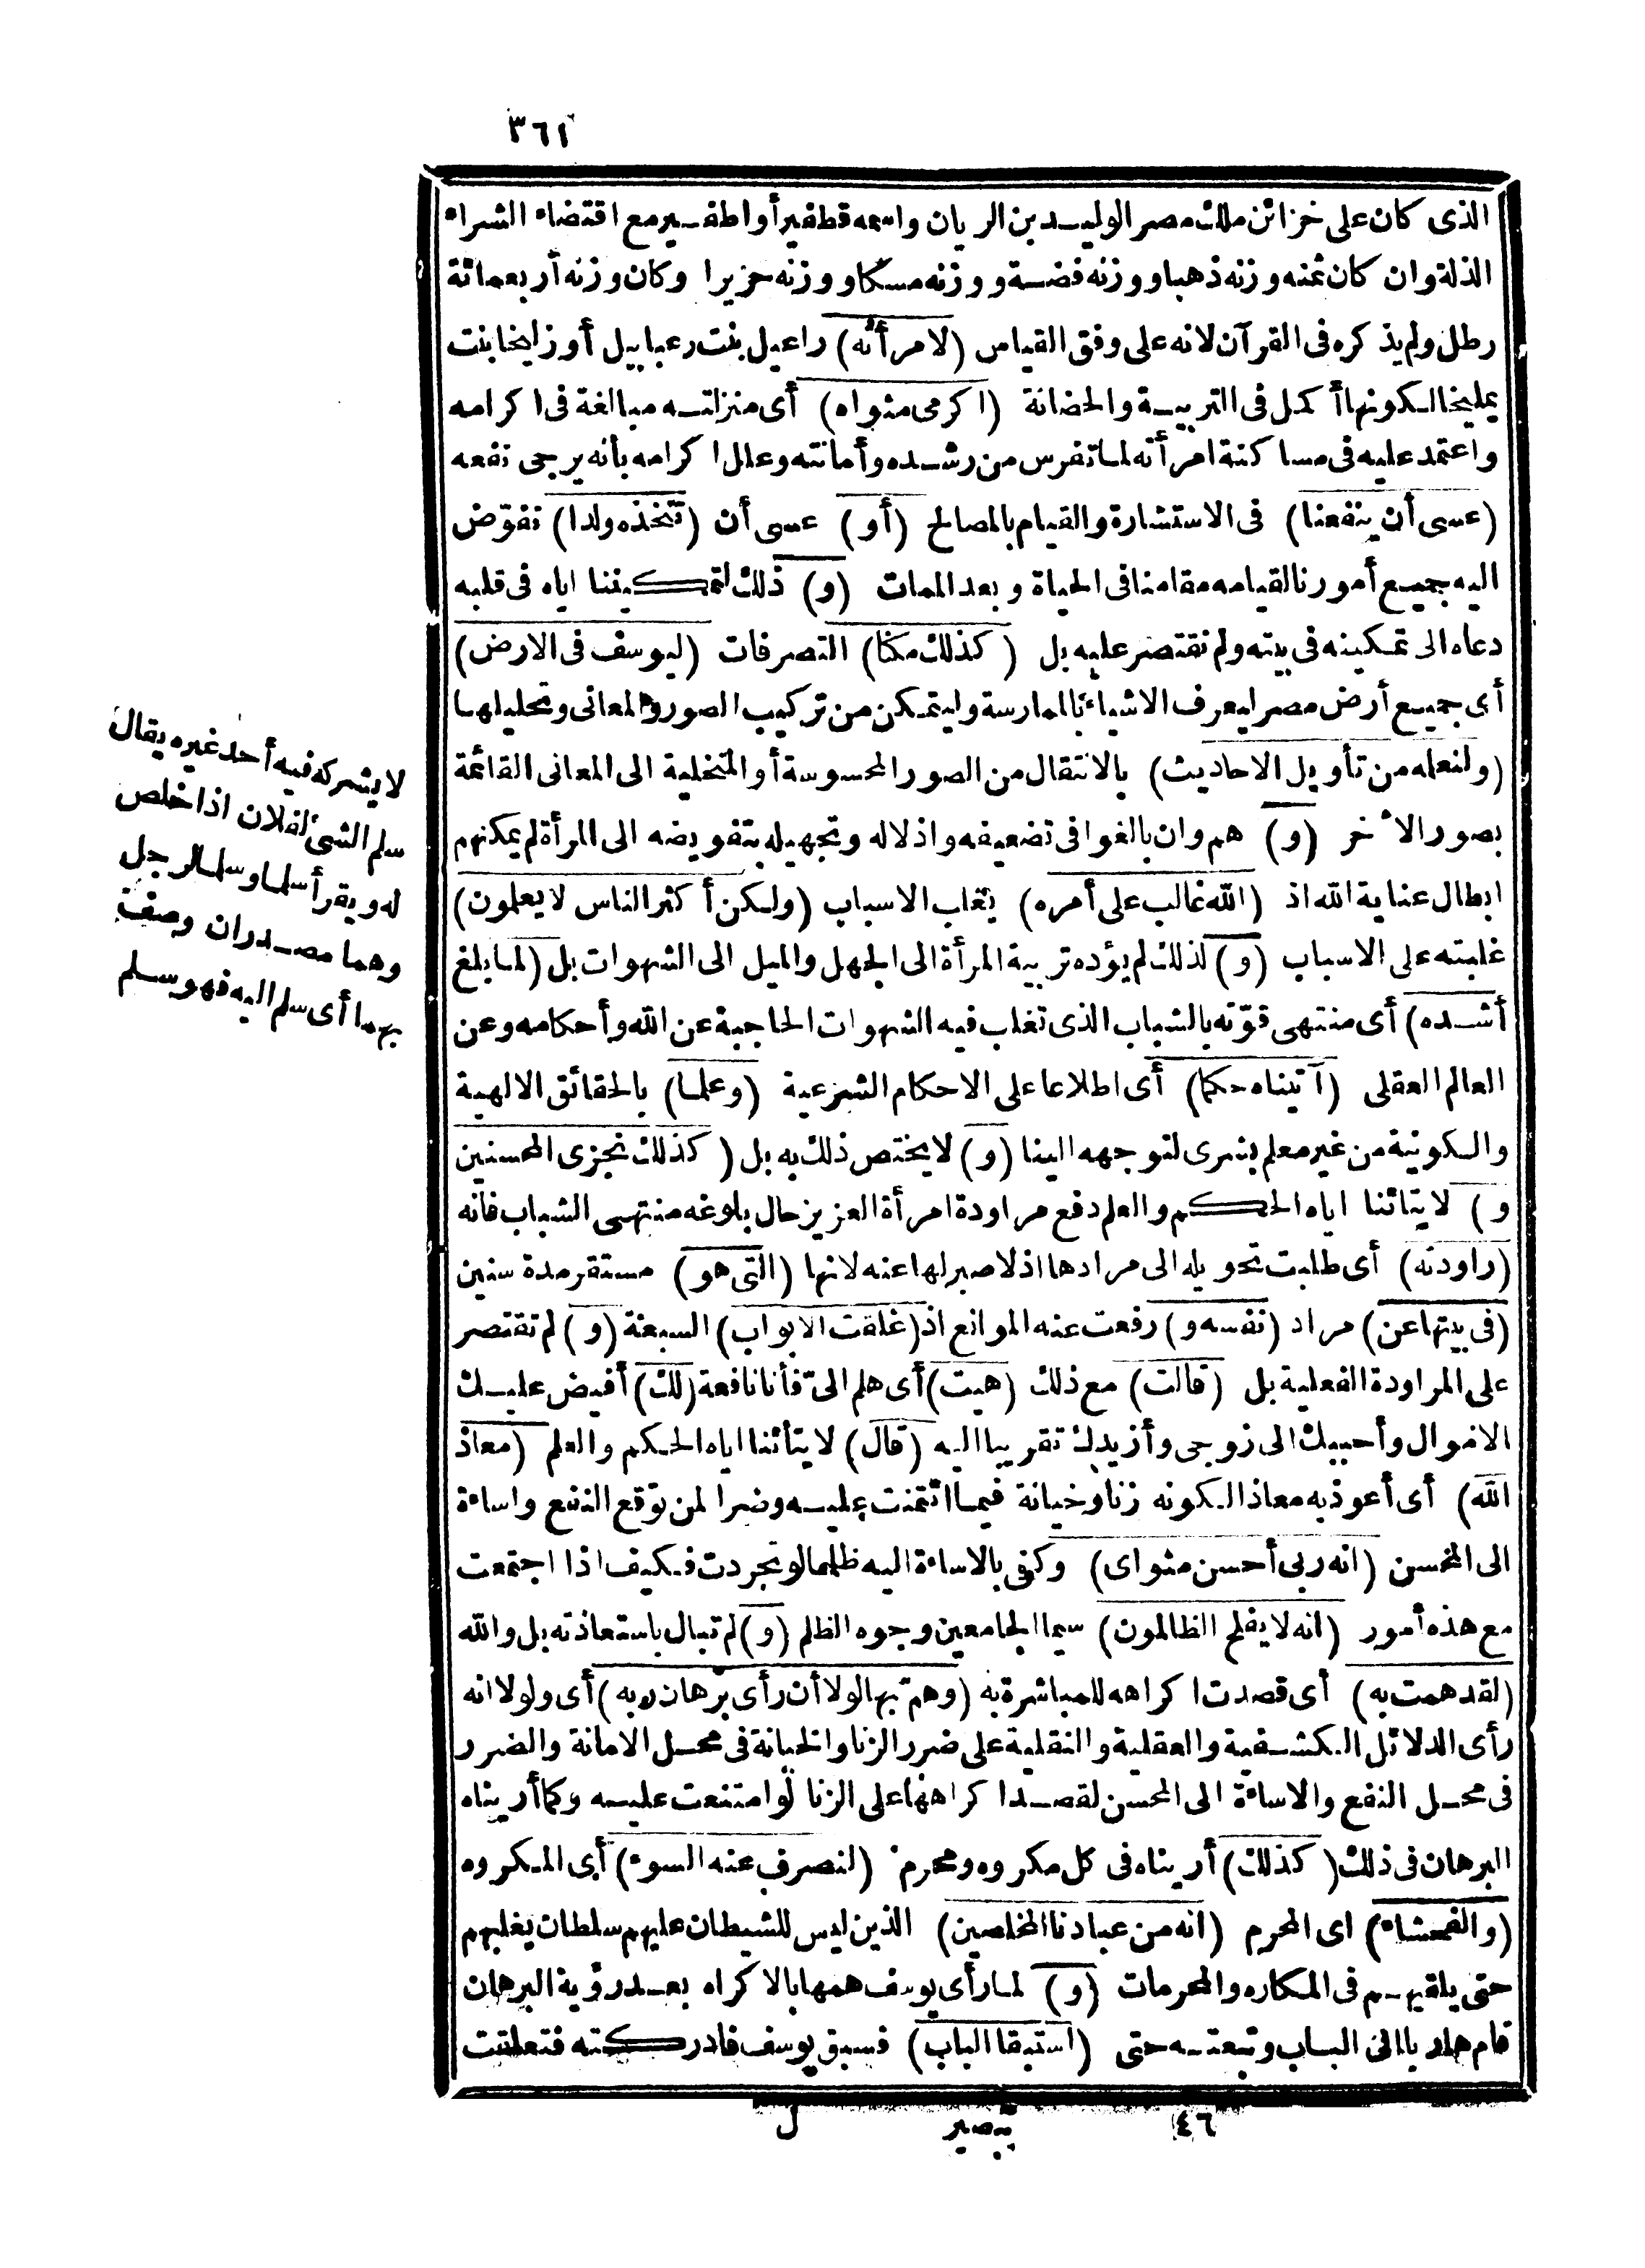 ٣٦١
الذى كان على خزائن ملك مصر الوليد بن الريان واسمه قطفير أو اطفير مع اقتضاء الشراء
الذلة وان كان ثمنه وزنه ذهبا ووزنه فضة ووزنه مسكا ووزنه حريرا وكان وزنه أربعمائة
رطل ولم يذكره فى القرآن لانه على وفق القياس (لامرأته) راعيل بنت رعباييل أو زليخا بنت
يمليخا لكونها أكمل فى التربية والحضانة (اكرمى مثواه) أى منزلته مبالغة فى اكرامه
واعتمد عليه فى مساكنة امرأته لما تفرس من رشده وأمانته وعلل اكرامه بأنه يرجى نفعه
(عسى أن ينفعنا) فى الاستشارة والقيام بالمصالح (أو) عسى أن (نتخذه ولدا) نفوّض
اليه جميع أمورنا لقيامه مقامنا فى الحياة وبعد الممات (و) ذلك لتمكيننا اياه فى قلبه
دعاه الى تمكينه فى بيته ولم نقتصر عليه بل (كذلك مكنا) التصرفات (ليوسف فى الارض)
أى جميع أرض مصر ليعرف الاشياء بالممارسة وليتمكن من تركيب الصور والمعانى وتحليلها
(ولنعلمه من تأويل الاحاديث) بالانتقال من الصور المحسوسة أو المتخيلة الى المعانى القائمة
بصور الأخر (و) هم وان بالغوا فى تضعيفه واذلاله وتجهيله بتفويضه الى المرأة لم يمكنهم
ابطال عناية الله اذ (الله غالب على أمره) يغلب الاسباب (ولكن أكثر الناس لا يعلمون)
غلبته على الاسباب (و) لذلك لم يؤده تربية المرأة الى الجهل والميل الى الشهوات بل (لما بلغ
أشده) أى منتهى قوّته بالشباب الذى تغلب فيه الشهوات الحاجبة عن الله وأحكامه وعن
العالم العقلى (آتيناه حكما) أى اطلاعا على الاحكام الشرعية (وعلما) بالحقائق الالهية
والكونية من غير معلم بشرى لتوجهه الينا (و) لا يختص ذلك به بل (كذلك نجزى المحسنين
و) لايتائنا اياه الحكم والعلم دفع مراودة امرأة العزيز حال بلوغه منتهى الشباب فانه
(راودته) أى طلبت تحويله الى مرادها اذ لا صبر لها عنه لانها (التى هو) مستقر مدة سنين
(فى بيتها عن) مراد (نفسه و) رفعت عنه الموانع اذ (غلقت الابواب) السبعة (و) لم تقتصر
على المراودة الفعلية بل (قالت) مع ذلك (هيت) أى هلم الىّ فأنا نافعة (لك) أفيض عليك
الاموال وأحببك الى زوجى وأزيدك تقريبا اليه (قال) لايتائنا اياه الحكم والعلم (معاذ
الله) أى أعوذ به معاذا لكونه زنا وخيانة فيما ائتمنت عليه وضرا لمن توقع النفع واساءة
الى المحسن (انه ربى أحسن مثواى) وكفى بالاساءة اليه ظلما لو تجردت فكيف اذا اجتمعت
مع هذه أمور (انه لا يفلح الظالمون) سيما الجامعين وجوه الظلم (و) لم تبال باستعاذته بل والله
(لقد همت به) أى قصدت اكراهه للمباشرة به (وهمّ بها لولا أن رأى برهان ربه) أى ولولا انه
رأى الدلائل الكشفية والعقلية والنقلية على ضرر الزنا والخيانة فى محل الامانة والضرر
فى محل النفع والاساءة الى المحسن لقصد اكراهها على الزنا لو امتنعت عليه وكما أريناه
البرهان فى ذلك (كذلك) أريناه فى كل مكروه ومحرم (لنصرف عنه السوء) أى المكروه
(والفحشاء) اى المحرم (انه من عبادنا المخلصين) الذين ليس للشيطان عليهم سلطان يغلبهم
حتى يلقيهم فى المكاره والمحرمات (و) لما رأى يوسف همها بالاكراه بعد رؤية البرهان
قام هاربا الى الباب وتبعته حتى (استبقا الباب) فسبق يوسف فادركته فتعلقت
٤٦ تبصير ل
لا يشركه فيه أحد غيره يقال
سلم الشئ لفلان اذا خلص
له ويقرأ سلما وسلما لرجل
وهما مصدران وصف
بهما أى سلم اليه فهو سلم